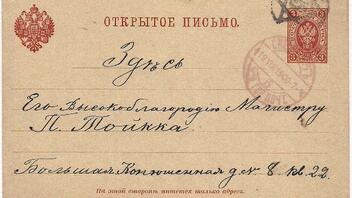 ОТКРЫТОЕ ПИСЬМО.
3 3
Здѣсь
Его Высокоблагородію Магистру
П. Тойкка
Большая Конюшенная д. № 8. кв. 22.
На этой сторонѣ пишется только адресъ.